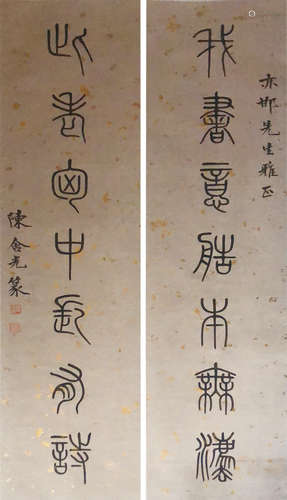 亦邨先生雅正
我書意艁本無灋
此老匈中長有詩
陳含光篆